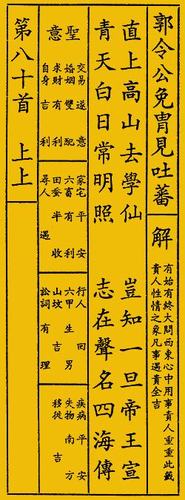 郭令公免冑見吐蕃
解
有始有終大問西東心中用事貴人重重此籤
貴人性情之象凡事遇貴全吉
直上高山去學仙 豈知一旦帝王宣
青天白日常明照 志在聲名四海傳
聖意
交易遂意
婚姻雙配
求財有利
自身吉利
家宅平安
六畜有利
田蚕半收
尋人遇
行人回
六甲生男
山墳吉
訟詞有理
疾病平安
失物南方
移徙吉
第八十首 上上